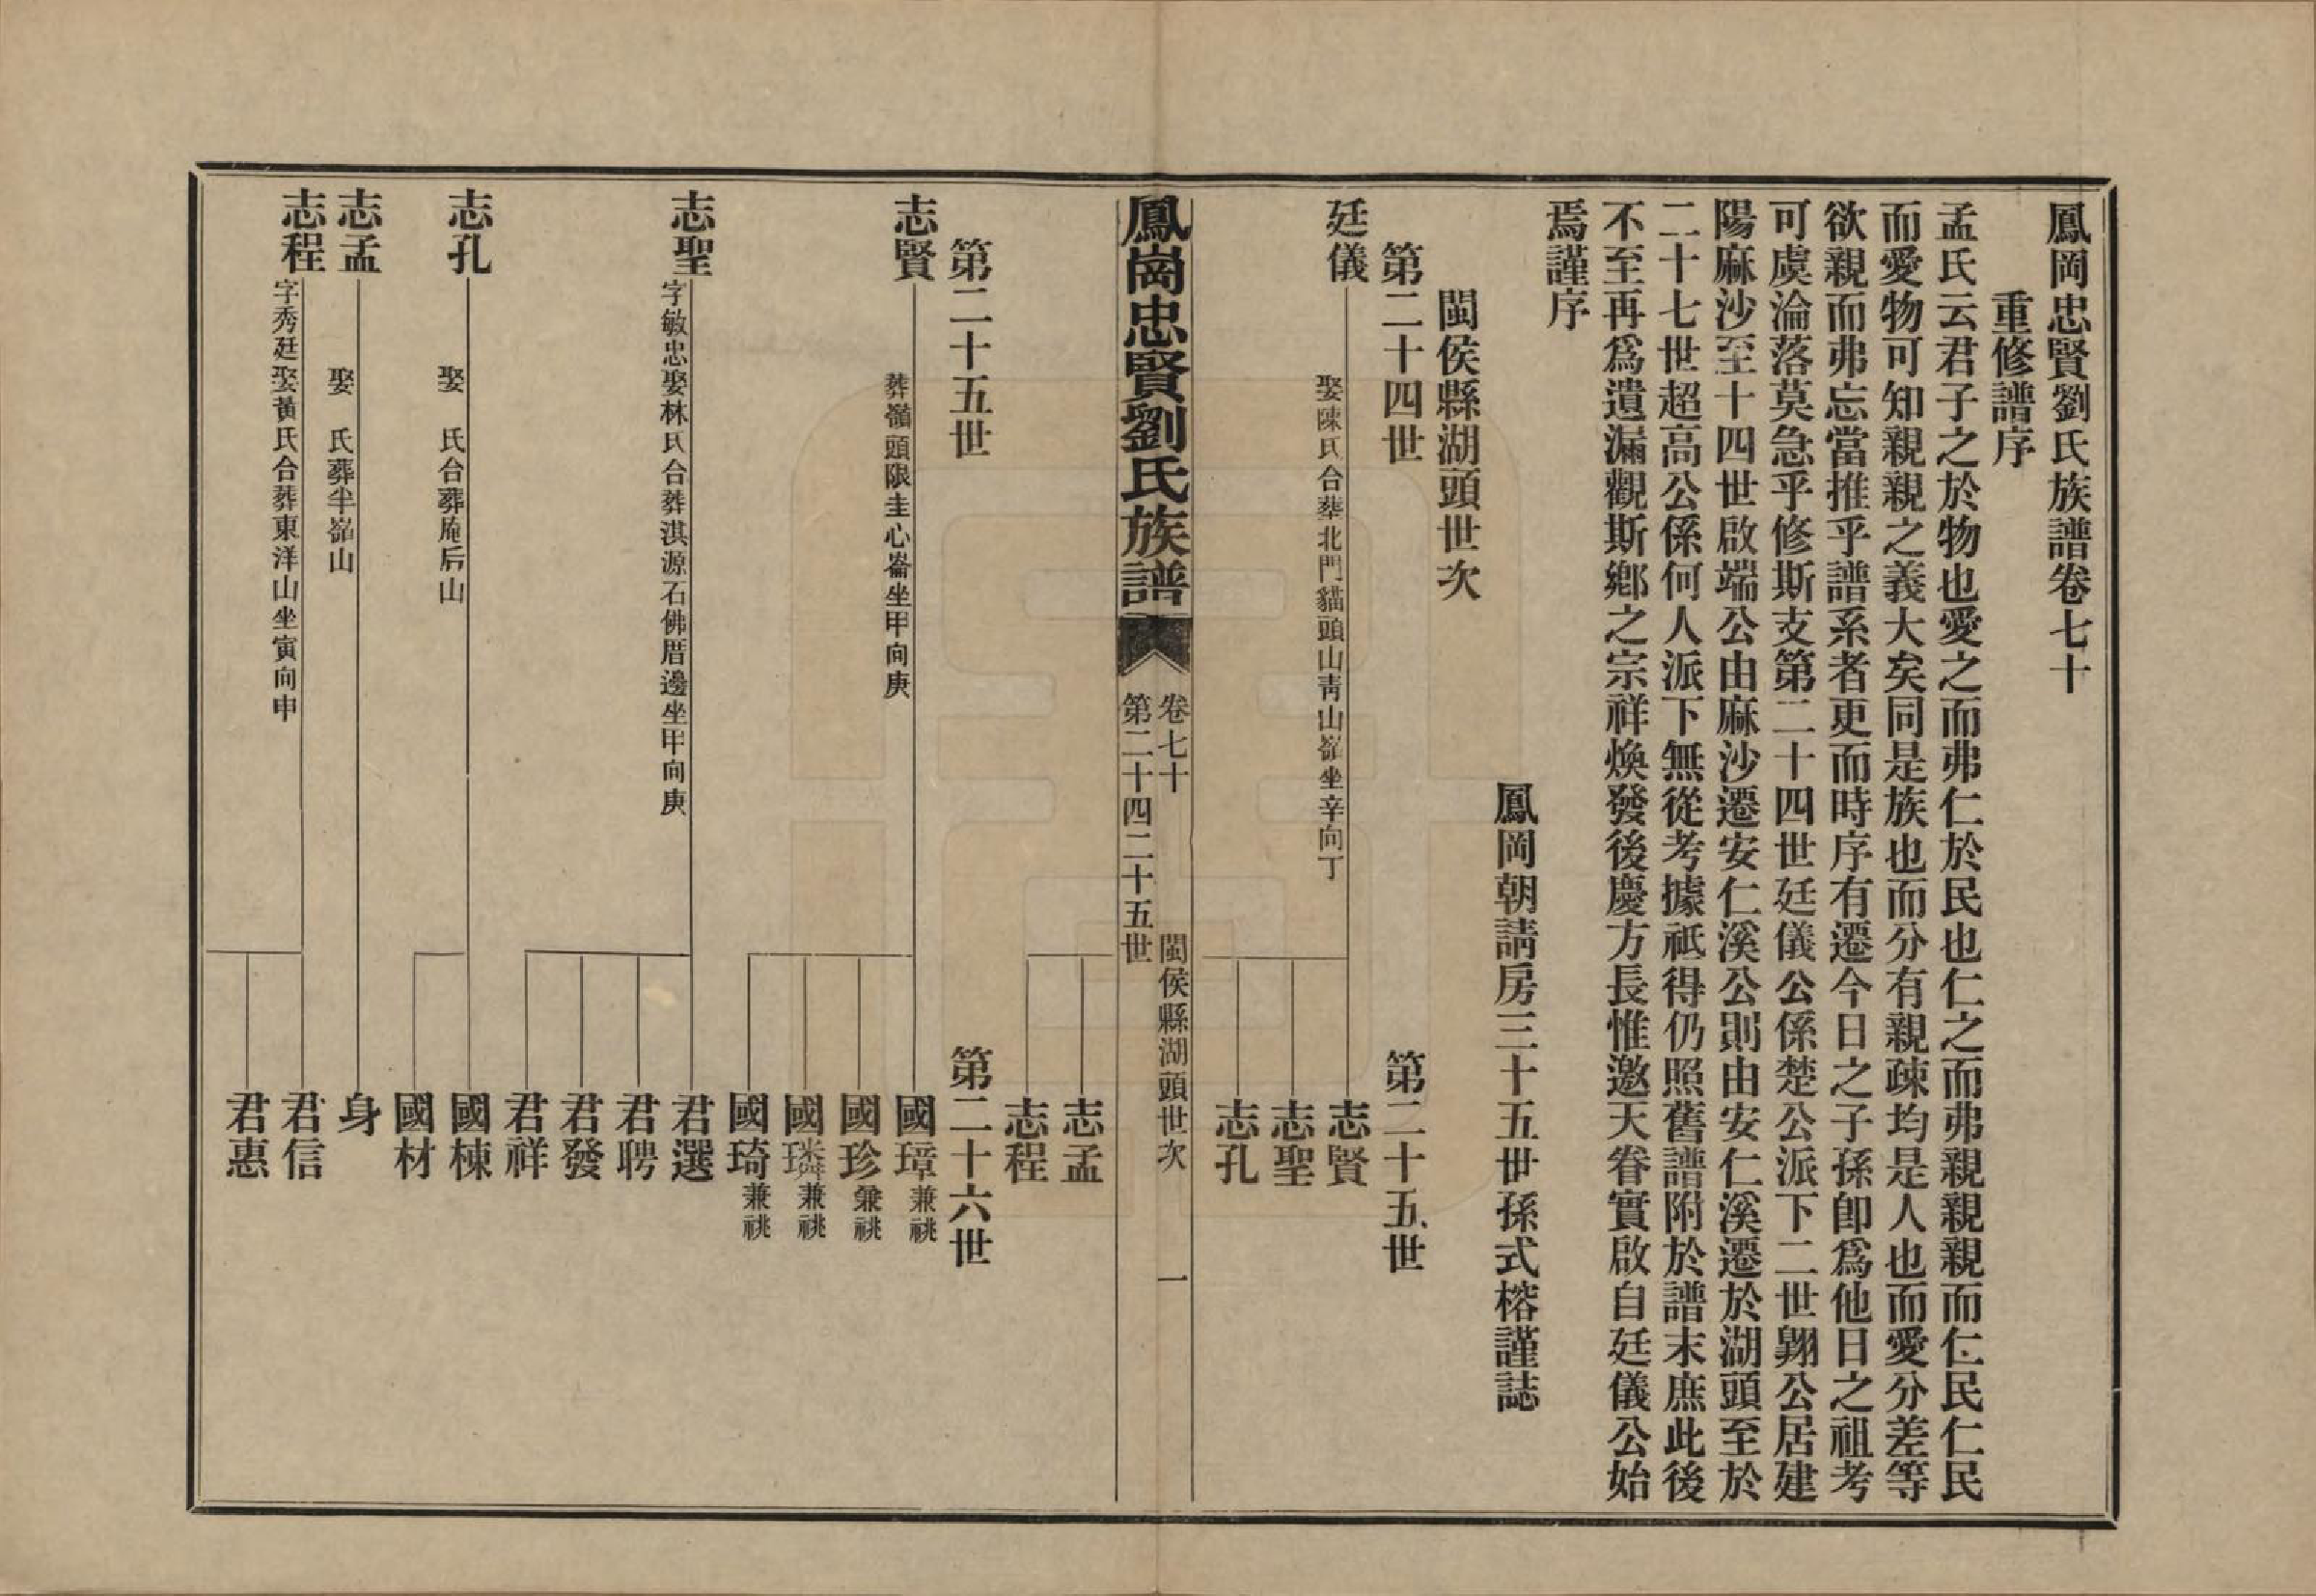 鳳岡忠賢劉氏族譜卷七十
重修譜序
孟氏云君子之於物也愛之而弗仁於民也仁之而弗親親親而仁民仁民
而愛物可知親親之義大矣同是族也而分有親疎均是人也而愛分差等
欲親而弗忘當推乎譜系者更而時序有遷今日之子孫卽爲他日之祖考
可虞淪落莫急乎修斯支第二十四世廷儀公係楚公派下二世翺公居建
陽麻沙至十四世啟端公由麻沙遷安仁溪公則由安仁溪遷於湖頭至於
二十七世超高公係何人派下無從考據祗得仍照舊譜附於譜末庶此後
不至再爲遺漏觀斯鄉之宗祥煥發後慶方長惟邀天眷實啟自廷儀公始
焉謹序
鳳岡朝請房三十五世孫式榕謹誌
閩侯縣湖頭世次
第二十四世 第二十五世
廷儀 娶陳氏合葬北門貓頭山靑山嶺坐辛向丁 志賢
志聖
志孔
志孟
志程
鳳崗忠賢劉氏族譜 卷七十 閩侯縣湖頭世次 一
第二十四二十五世
第二十五世 第二十六世
志賢 葬嶺頭限圭心崙坐甲向庚 國璋兼祧
國珍兼祧
國璘兼祧
國琦兼祧
志聖 字敏忠娶林氏合葬淇源石佛厝邊坐甲向庚 君選
君聘
君發
君祥
志孔 娶 氏合葬庵后山 國棟
國材
志孟 娶 氏葬半嶺山 身
志程 字秀廷娶黃氏合葬東洋山坐寅向申 君信
君惠